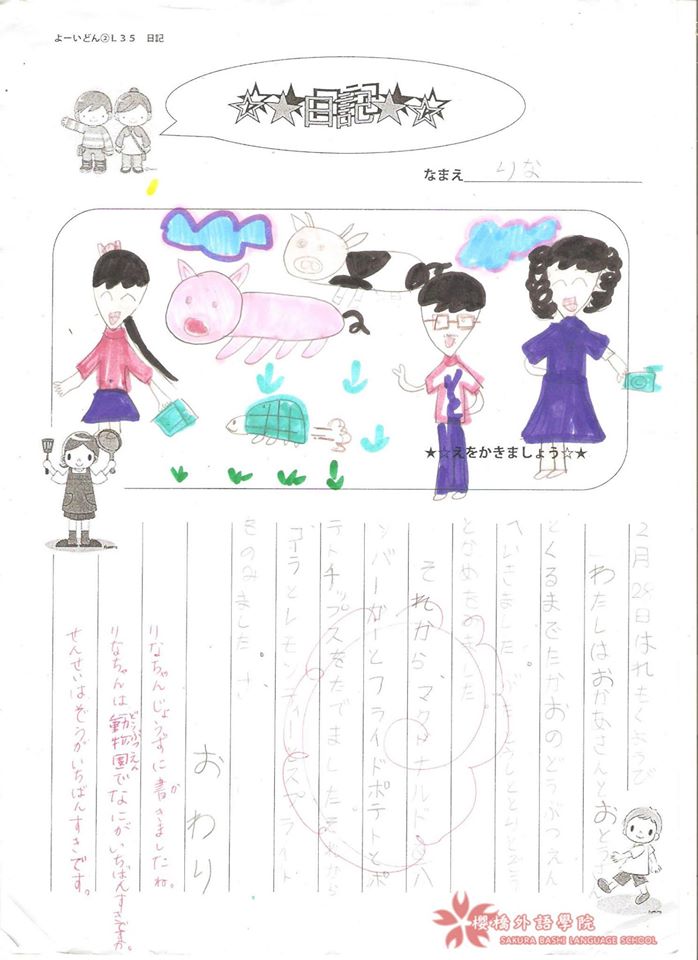 よーいどん②L35 日記
☆★日記★☆
なまえ りな
★☆えをかきましょう☆★
2月28日はれもくようび
わたしはおかあさんとおとうさん
とくるまでたかおのどうぶつえん
へいきました。
となめをみました。
それから、マクドナルド
ンバーガーとフライドポテトとポ
テトチップスをたでました それから
コーラとレモンティーとスプライト
をのみました。
おわり
りなちゃんじょうずに書かきましたね。
りなちゃんは動物園どうぶつえんでなにがいちばんすきですか。
せんせいはぞうがいちばんすきです。
櫻橋外語學院
SAKURA BASHI LANGUAGE SCHOOL